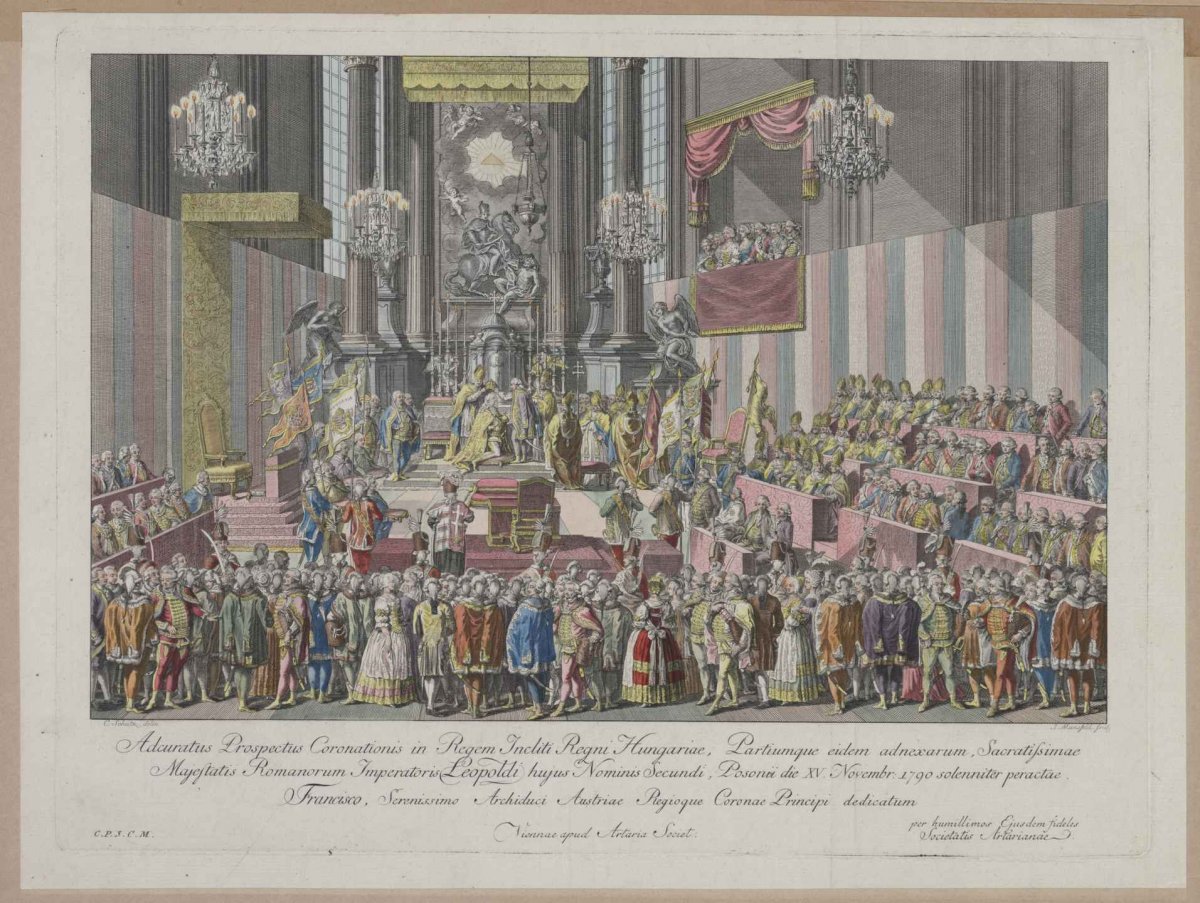 C. Schütz delin.
J. Mansfeld sculp.
Adcuratus Prospectus Coronationis in Regem Incliti Regni Hungariae, Partiumque eidem adnexarum, Sacratiſsimae
Majeſtatis Romanorum Imperatoris Leopoldi hujus Nominis Secundi, Posonii die XV. Novembr: 1790 solenniter peractae.
Francisco, Serenissimo Archiduci Austriae Regioque Coronae Principi dedicatum
per humillimos Ejusdem fideles
C.P.S.C.M.
Viennae apud Artaria Societ.
Societatis Artarianae